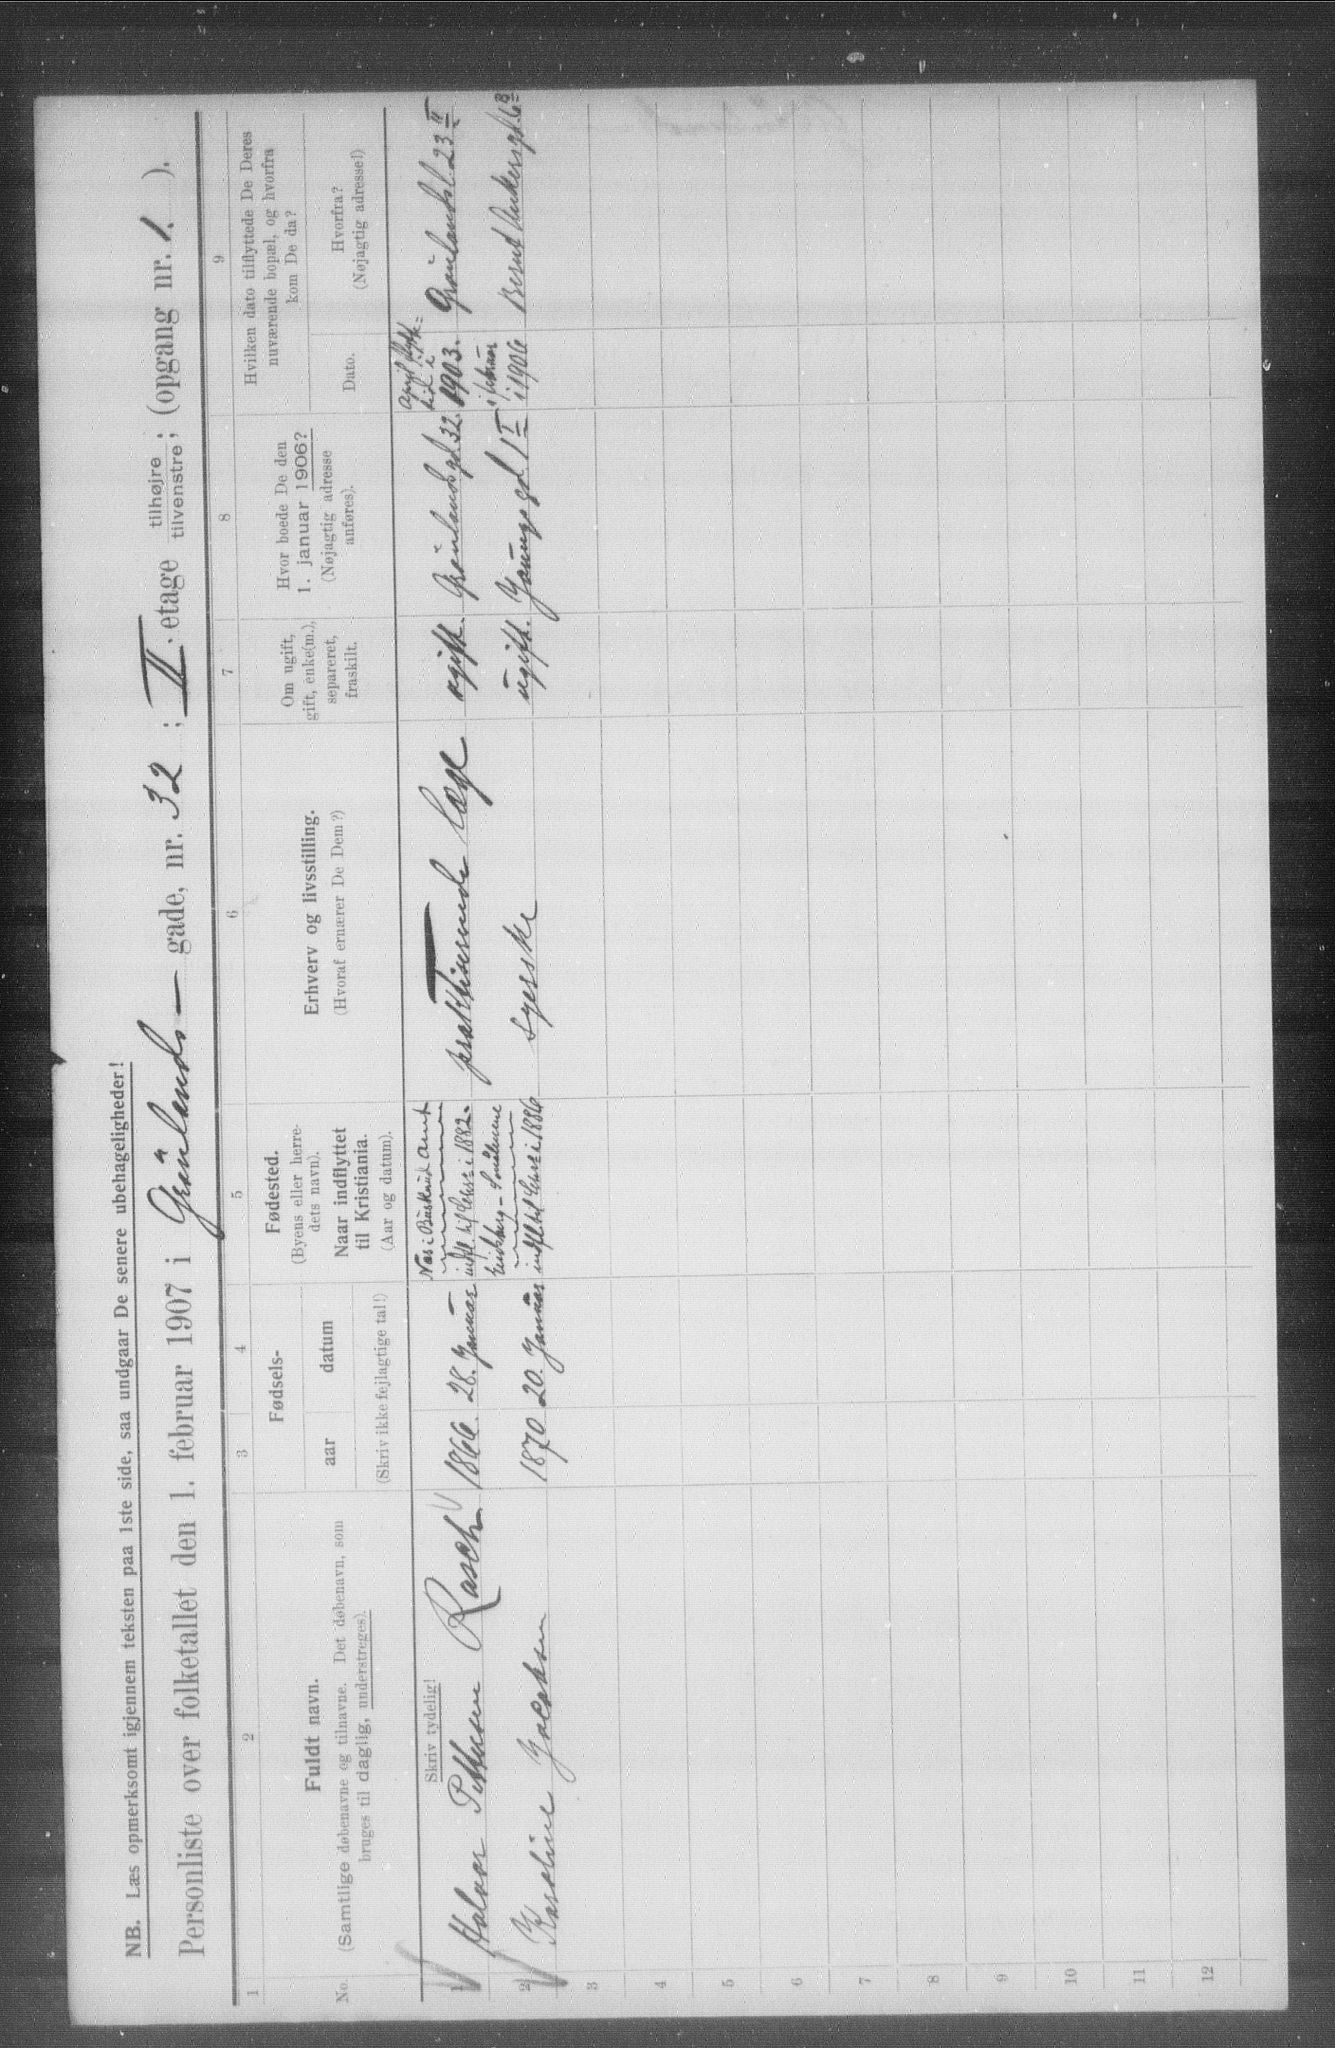 NB. Læs opmerksomt igjennem teksten paa 1ste side, saa undgaar De senere ubehageligheder!
Personliste over folketallet den 1. februar 1907 i Grönlands- gade, nr. 32 ; II. etage tilhøjre tilvenstre; (opgang nr. 1. ).
1 2 3 4 5 6 7 8 9
No.
Fuldt navn.
(Samtlige døbenavne og tilnavne. Det døbenavn, som
bruges til daglig, understreges).
Fødsels-
aar datum
(Skriv ikke fejlagtige tal!)
Fødested.
(Byens eller herre-
dets navn).
Naar indflyttet
til Kristiania.
(Aar og datum).
Erhverv og livsstilling.
(Hvoraf ernærer De Dem?)
Om ugift,
gift, enke(m.),
separeret,
fraskilt.
Hvor boede De den
1. januar 1906?
(Nøjagtig adresse
anføres).
Hvilken dato tilflyttede De Deres
nuværende bopæl, og hvorfra
kom De da?
Dato.
Hvorfra?
(Nøjagtig adresse!)
Skriv tydelig!
Nes i Buskerud amt
1 Halvor Pettersen Rasch 1866. 28. Januar i 1882. praktiserende læge ugift. Grönlandsgd 32. April 1903. Grönlandsl. 23 II
Eidsberg - Smålenene
2 Karoline Jacobsen 1870 20. Januar i 1886 syerske ugift. Youngsgd. 1 I i februar i 1906 Bernt Ankersgd. 6 B
3
4
5
6
7
8
9
10
11
12